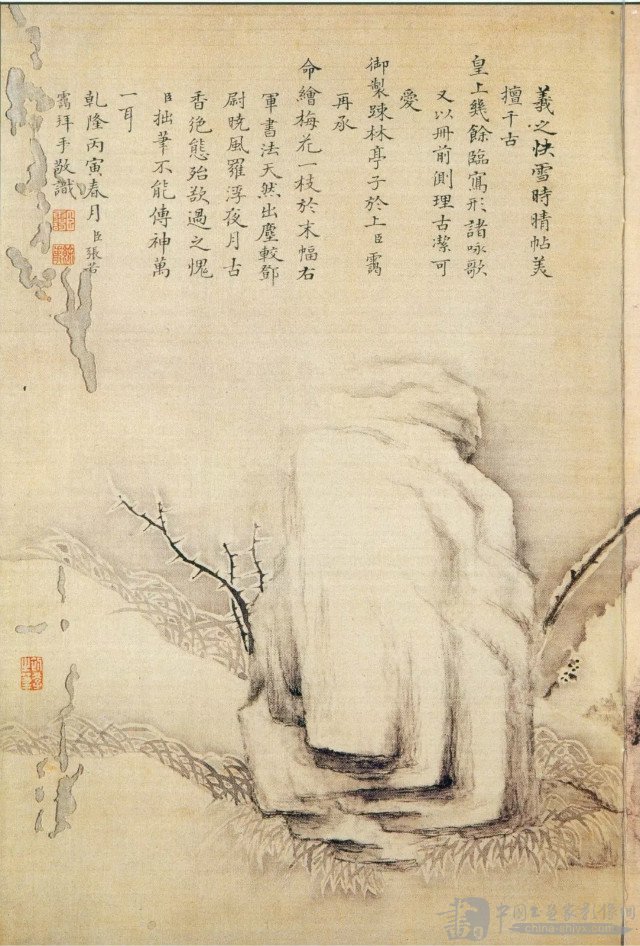 羲之快雪時晴帖美
擅千古
皇上幾餘臨寫形諸咏歌
又以冊前側理古潔可
愛
御製疎林亭子於上臣靄
再承
命繪梅花一枝於末幅右
軍書法天然出塵較鄧
尉曉風羅浮夜月古
香絕態殆欲過之愧
臣拙筆不能傳神萬
一耳
乾隆丙寅春月臣張若
靄拜手敬識
中国书画家影像网
china-shiyx.com